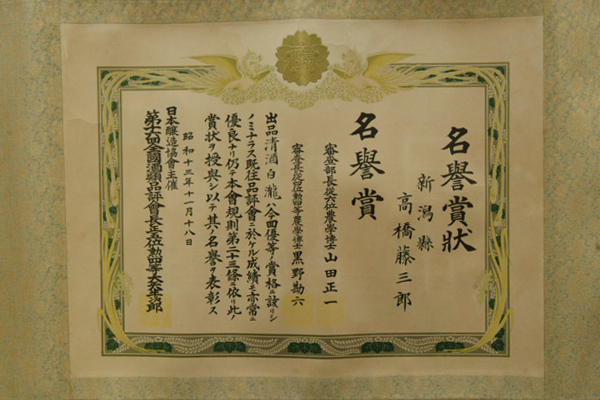 名譽賞狀
新潟縣
高橋藤三郎
名譽賞
審査部長從六位農學博士 山田正一
審査長從四位勲四等農學博士 黒野勘六
出品清酒白瀧ハ今回優等ノ賞格ニ該リシ
ノミナラス既往品評會ニ於ケル成績モ亦常ニ
優良ナリ仍テ本會規則第二十三條ニ依リ此ノ
賞狀ヲ授與シ以テ其ノ名譽ヲ表彰ス
昭和十三年十一月十八日
日本釀造協會主催
第十六回全國酒類品評會長正五位勲四等